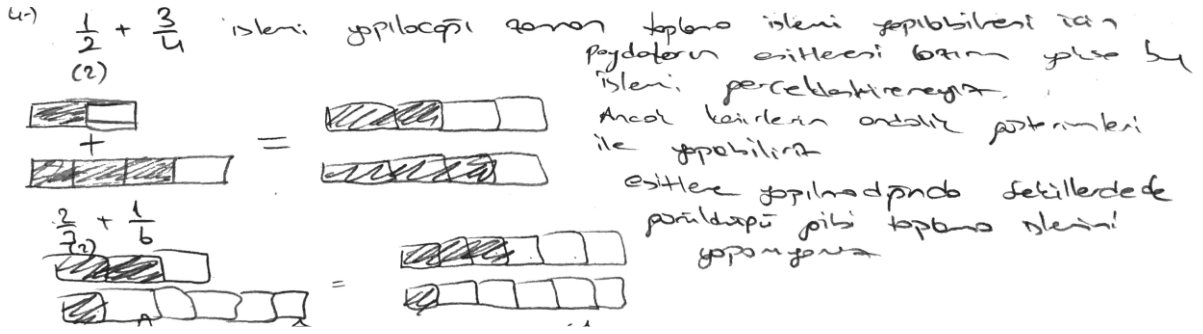 4-) 1/2 + 3/4 işlemi yapılacağı zaman toplama işlemi yapılabilmesi için
(2) paydaların eşitlenmesi lazım yoksa bu
işlemi gerçekleştiremeyiz.
Ancak kesirlerin ondalık gösterimleri
+ =
ile yapabiliriz
eşitleme yapılmadığında şekillerde de
2/7 + 1/6 görüldüğü gibi toplama işlemini
(2) yapamıyoruz
=